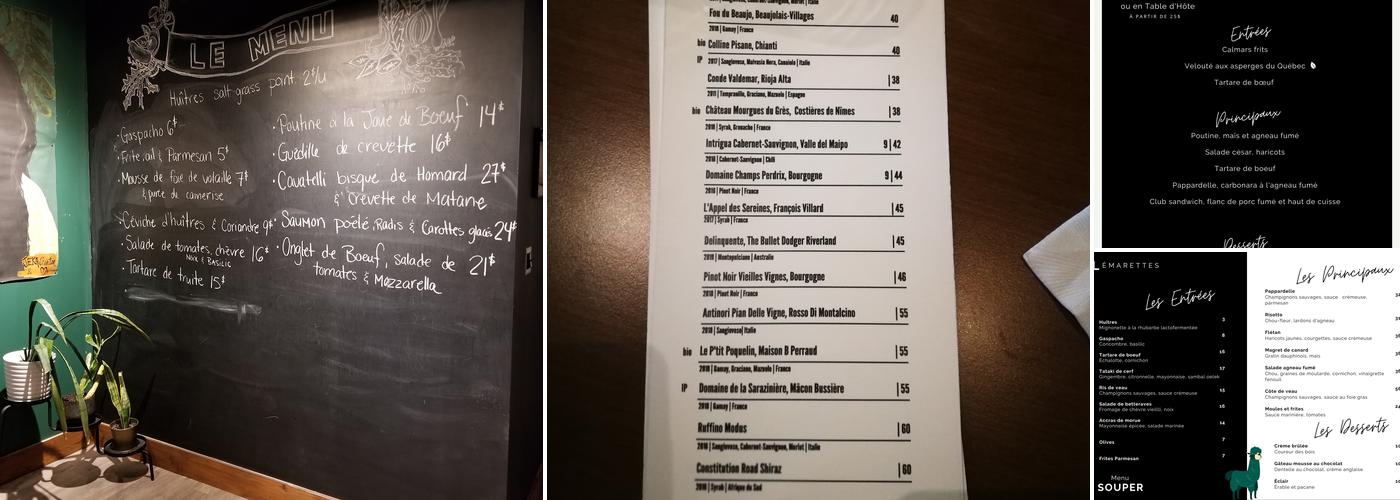 LE MENU
Huîtres salt grass point 2$/u
• Gaspacho 6$
• Frite, ail & Parmesan 5$
• Mousse de foie de volaille 7$
& purée de camerise
• Céviche d'huîtres & Coriandre 9$
• Salade de tomates, chèvre 16$
Noix & BASILIC
• Tartare de truite 15$
• Poutine à la Joue de Boeuf 14$
• Guédille de crevette 16$
• Cavatelli bisque de Homard 27$
& Crevette de Matane
• Saumon poêlé, Radis & Carottes glacés 24$
• Onglet de Boeuf, salade de 21$
tomates & Mozzarella
Fou du Beaujo, Beaujolais-Villages 40
2018 | Gamay | France
bio Colline Pisane, Chianti 40
IP 2017 | Sangiovese, Malvasia Nera, Canaiolo | Italie
Conde Valdemar, Rioja Alta | 38
2011 | Tempranillo, Graciano, Mazuelo | Espagne
bio Château Mourgues du Grès, Costières de Nîmes | 38
2018 | Syrah, Grenache | France
Intrigua Cabernet-Sauvignon, Valle del Maipo 9 | 42
2018 | Cabernet-Sauvignon | Chili
Domaine Champs Perdrix, Bourgogne 9 | 44
2018 | Pinot Noir | France
L'Appel des Sereines, François Villard | 45
2017 | Syrah | France
Delinquente, The Bullet Dodger Riverland | 45
2018 | Montepulciano | Australie
Pinot Noir Vieilles Vignes, Bourgogne | 46
2018 | Pinot Noir | France
Antinori Pian Delle Vigne, Rosso Di Montalcino | 55
2018 | Sangiovese | Italie
bio Le P'tit Poquelin, Maison B Perraud | 55
2018 | Gamay, Graciano, Mazuelo | France
IP Domaine de la Sarazinière, Mâcon Bussière | 55
2018 | Gamay | France
Ruffino Modus | 60
2016 | Sangiovese, Cabernet-Sauvignon, Merlot | Italie
Constitution Road Shiraz | 60
2018 | Syrah | Afrique du Sud
ou en Table d'Hôte
À PARTIR DE 25$
Entrées
Calmars frits
Velouté aux asperges du Québec
Tartare de bœuf
Principaux
Poutine, maïs et agneau fumé
Salade césar, haricots
Tartare de boeuf
Pappardelle, carbonara à l'agneau fumé
Club sandwich, flanc de porc fumé et haut de cuisse
Desserts
LÉMARETTES
Les Entrées
Huîtres 3
Mignonette à la rhubarbe lactofermentée
Gaspache 8
Concombre, basilic
Tartare de boeuf 16
Échalotte, cornichon
Tataki de cerf 17
Gingembre, citronnelle, mayonnaise, sambal oelek
Ris de veau 15
Champignons sauvages, sauce crémeuse
Salade de betteraves 16
Fromage de chèvre vieilli, noix
Accras de morue 14
Mayonnaise épicée, salade marinée
Olives 7
Frites Parmesan 7
Menu
SOUPER
Les Principaux
Pappardelle
Champignons sauvages, sauce crémeuse,
parmesan
Risotto
Chou-fleur, lardons d'agneau
Flétan
Haricots jaunes, courgettes, sauce crémeuse
Magret de canard
Gratin dauphinois, maïs
Salade agneau fumé
Chou, graines de moutarde, cornichon, vinaigrette
fenouil
Côte de veau
Champignons sauvages, sauce au foie gras
Moules et frites
Sauce marinière, tomates
Les Desserts
Crème brûlée
Coureur des bois
Gâteau mousse au chocolat
Dentelle au chocolat, crème anglaise
Éclair
Érable et pacane